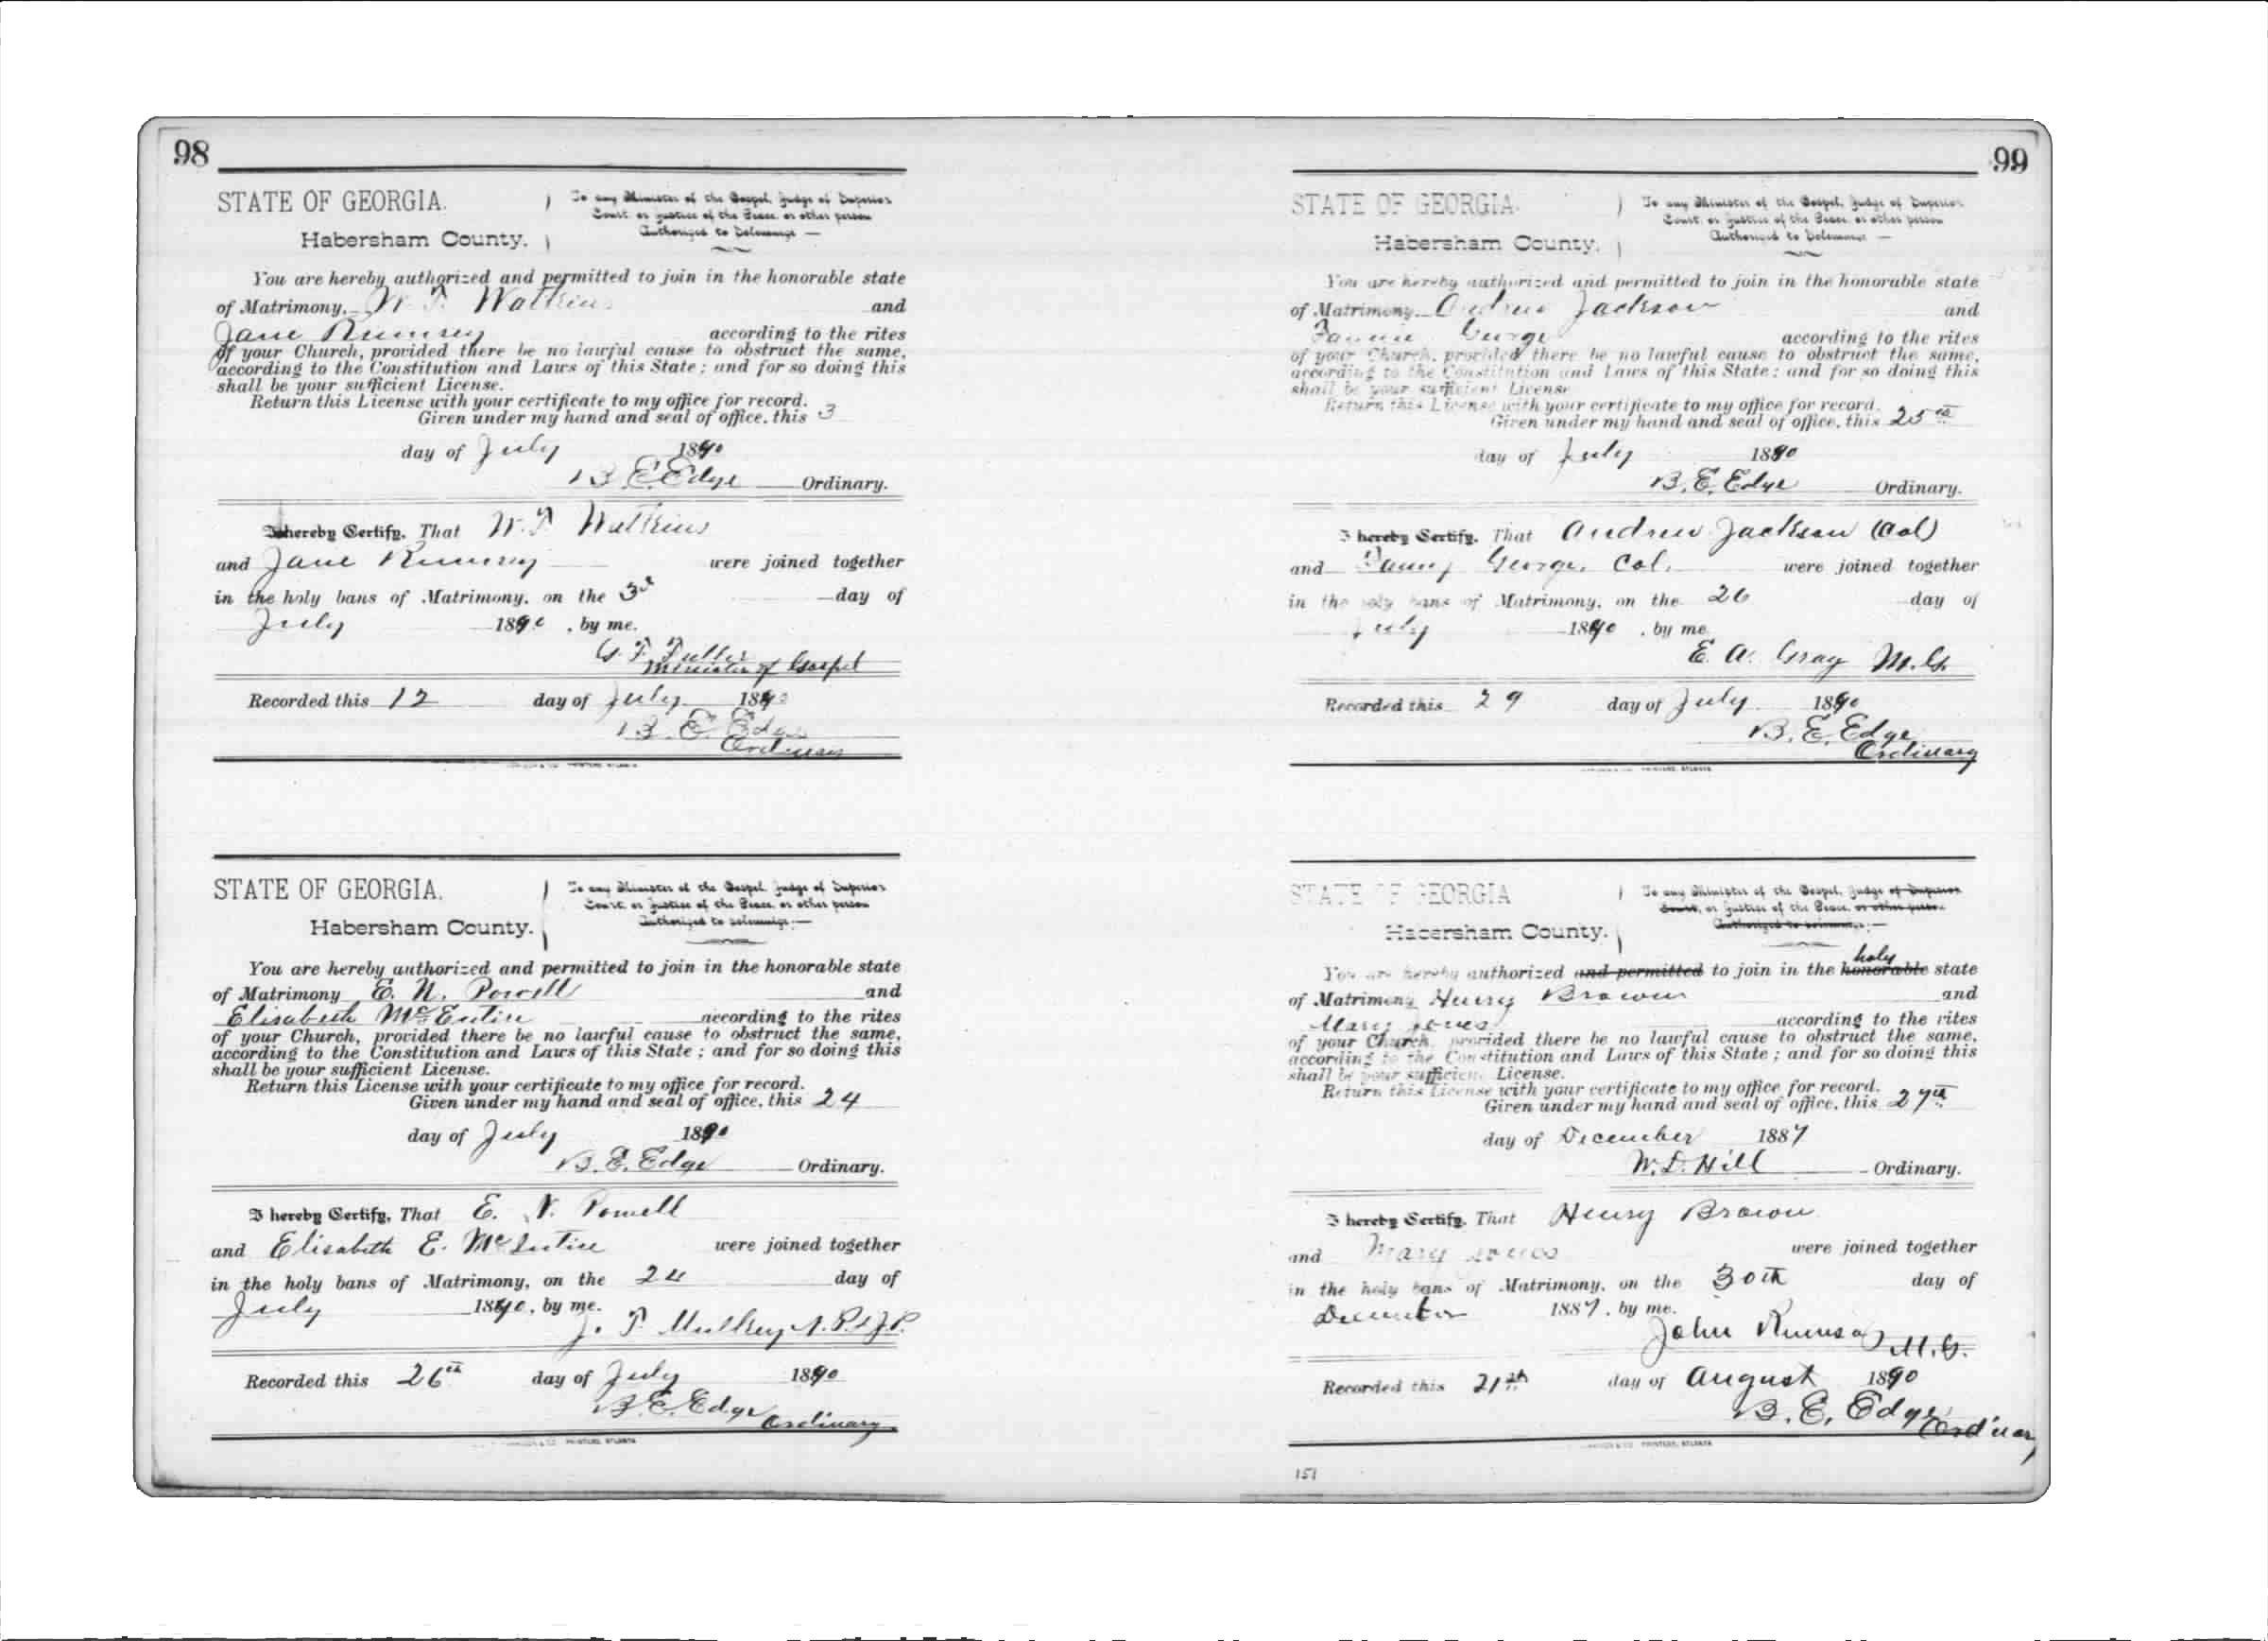 98
STATE OF GEORGIA.
Habersham County.
To any Minister of the Gospel, Judge of Superior
Court, or Justice of the Peace, or other person
Authorized to Solemnize —
You are hereby authorized and permitted to join in the honorable state
of Matrimony, W. T. Watkins and
Jane Rumsey according to the rites
of your Church, provided there be no lawful cause to obstruct the same,
according to the Constitution and Laws of this State; and for so doing this
shall be your sufficient License.
Return this License with your certificate to my office for record.
Given under my hand and seal of office, this 3
day of July 1890
B. E. Edge Ordinary.
I hereby Certify, That W. T. Watkins
and Jane Rumsey were joined together
in the holy bans of Matrimony, on the 3d day of
July 1890, by me.
G. T. Fuller
Minister of Gospel
Recorded this 12 day of July 1890
B. E. Edge
Ordinary
STATE OF GEORGIA.
Habersham County.
To any Minister of the Gospel, Judge of Superior
Court, or Justice of the Peace, or other person
Authorized to solemnize, —
You are hereby authorized and permitted to join in the honorable state
of Matrimony E. N. Powell and
Elisabeth McEntire according to the rites
of your Church, provided there be no lawful cause to obstruct the same,
according to the Constitution and Laws of this State; and for so doing this
shall be your sufficient License.
Return this License with your certificate to my office for record.
Given under my hand and seal of office, this 24
day of July 1890
B. E. Edge Ordinary.
I hereby Certify, That E. N. Powell
and Elisabeth E. McEntire were joined together
in the holy bans of Matrimony, on the 24 day of
July 1890, by me.
J. T. Mulkey N.P.&J.P.
Recorded this 26th day of July 1890
B. E. Edge Ordinary
PRINTERS, ATLANTA
99
STATE OF GEORGIA.
Habersham County.
To any Minister of the Gospel, Judge of Superior
Court, or Justice of the Peace, or other person
Authorized to Solemnize —
You are hereby authorized and permitted to join in the honorable state
of Matrimony, Andrew Jackson and
Fannie George according to the rites
of your Church, provided there be no lawful cause to obstruct the same,
according to the Constitution and Laws of this State; and for so doing this
shall be your sufficient License
Return this License with your certificate to my office for record.
Given under my hand and seal of office, this 25th
day of July 1890
B. E. Edge Ordinary.
I hereby Certify, That Andrew Jackson (Col)
and Fanny George, Col. were joined together
in the holy bans of Matrimony, on the 26 day of
July 1890, by me.
E. A. Gray M.G.
Recorded this 29 day of July 1890
B. E. Edge
Ordinary
STATE OF GEORGIA
Habersham County.
To any Minister of the Gospel, Judge of Superior
Court, or Justice of the Peace, or other person
Authorized to solemnize, —
holy
You are hereby authorized and permitted to join in the honorable state
of Matrimony Henry Brown and
Mary Jones according to the rites
of your Church, provided there be no lawful cause to obstruct the same,
according to the Constitution and Laws of this State; and for so doing this
shall be your sufficient License.
Return this License with your certificate to my office for record.
Given under my hand and seal of office, this 27th
day of December 1887
W. D. Hill Ordinary.
I hereby Certify, That Henry Brown
and Mary Jones were joined together
in the holy bans of Matrimony, on the 30th day of
December 1887, by me.
John Rumsay M.G.
Recorded this 21th day of August 1890
B. E. Edge Ordinary
PRINTERS, ATLANTA
151